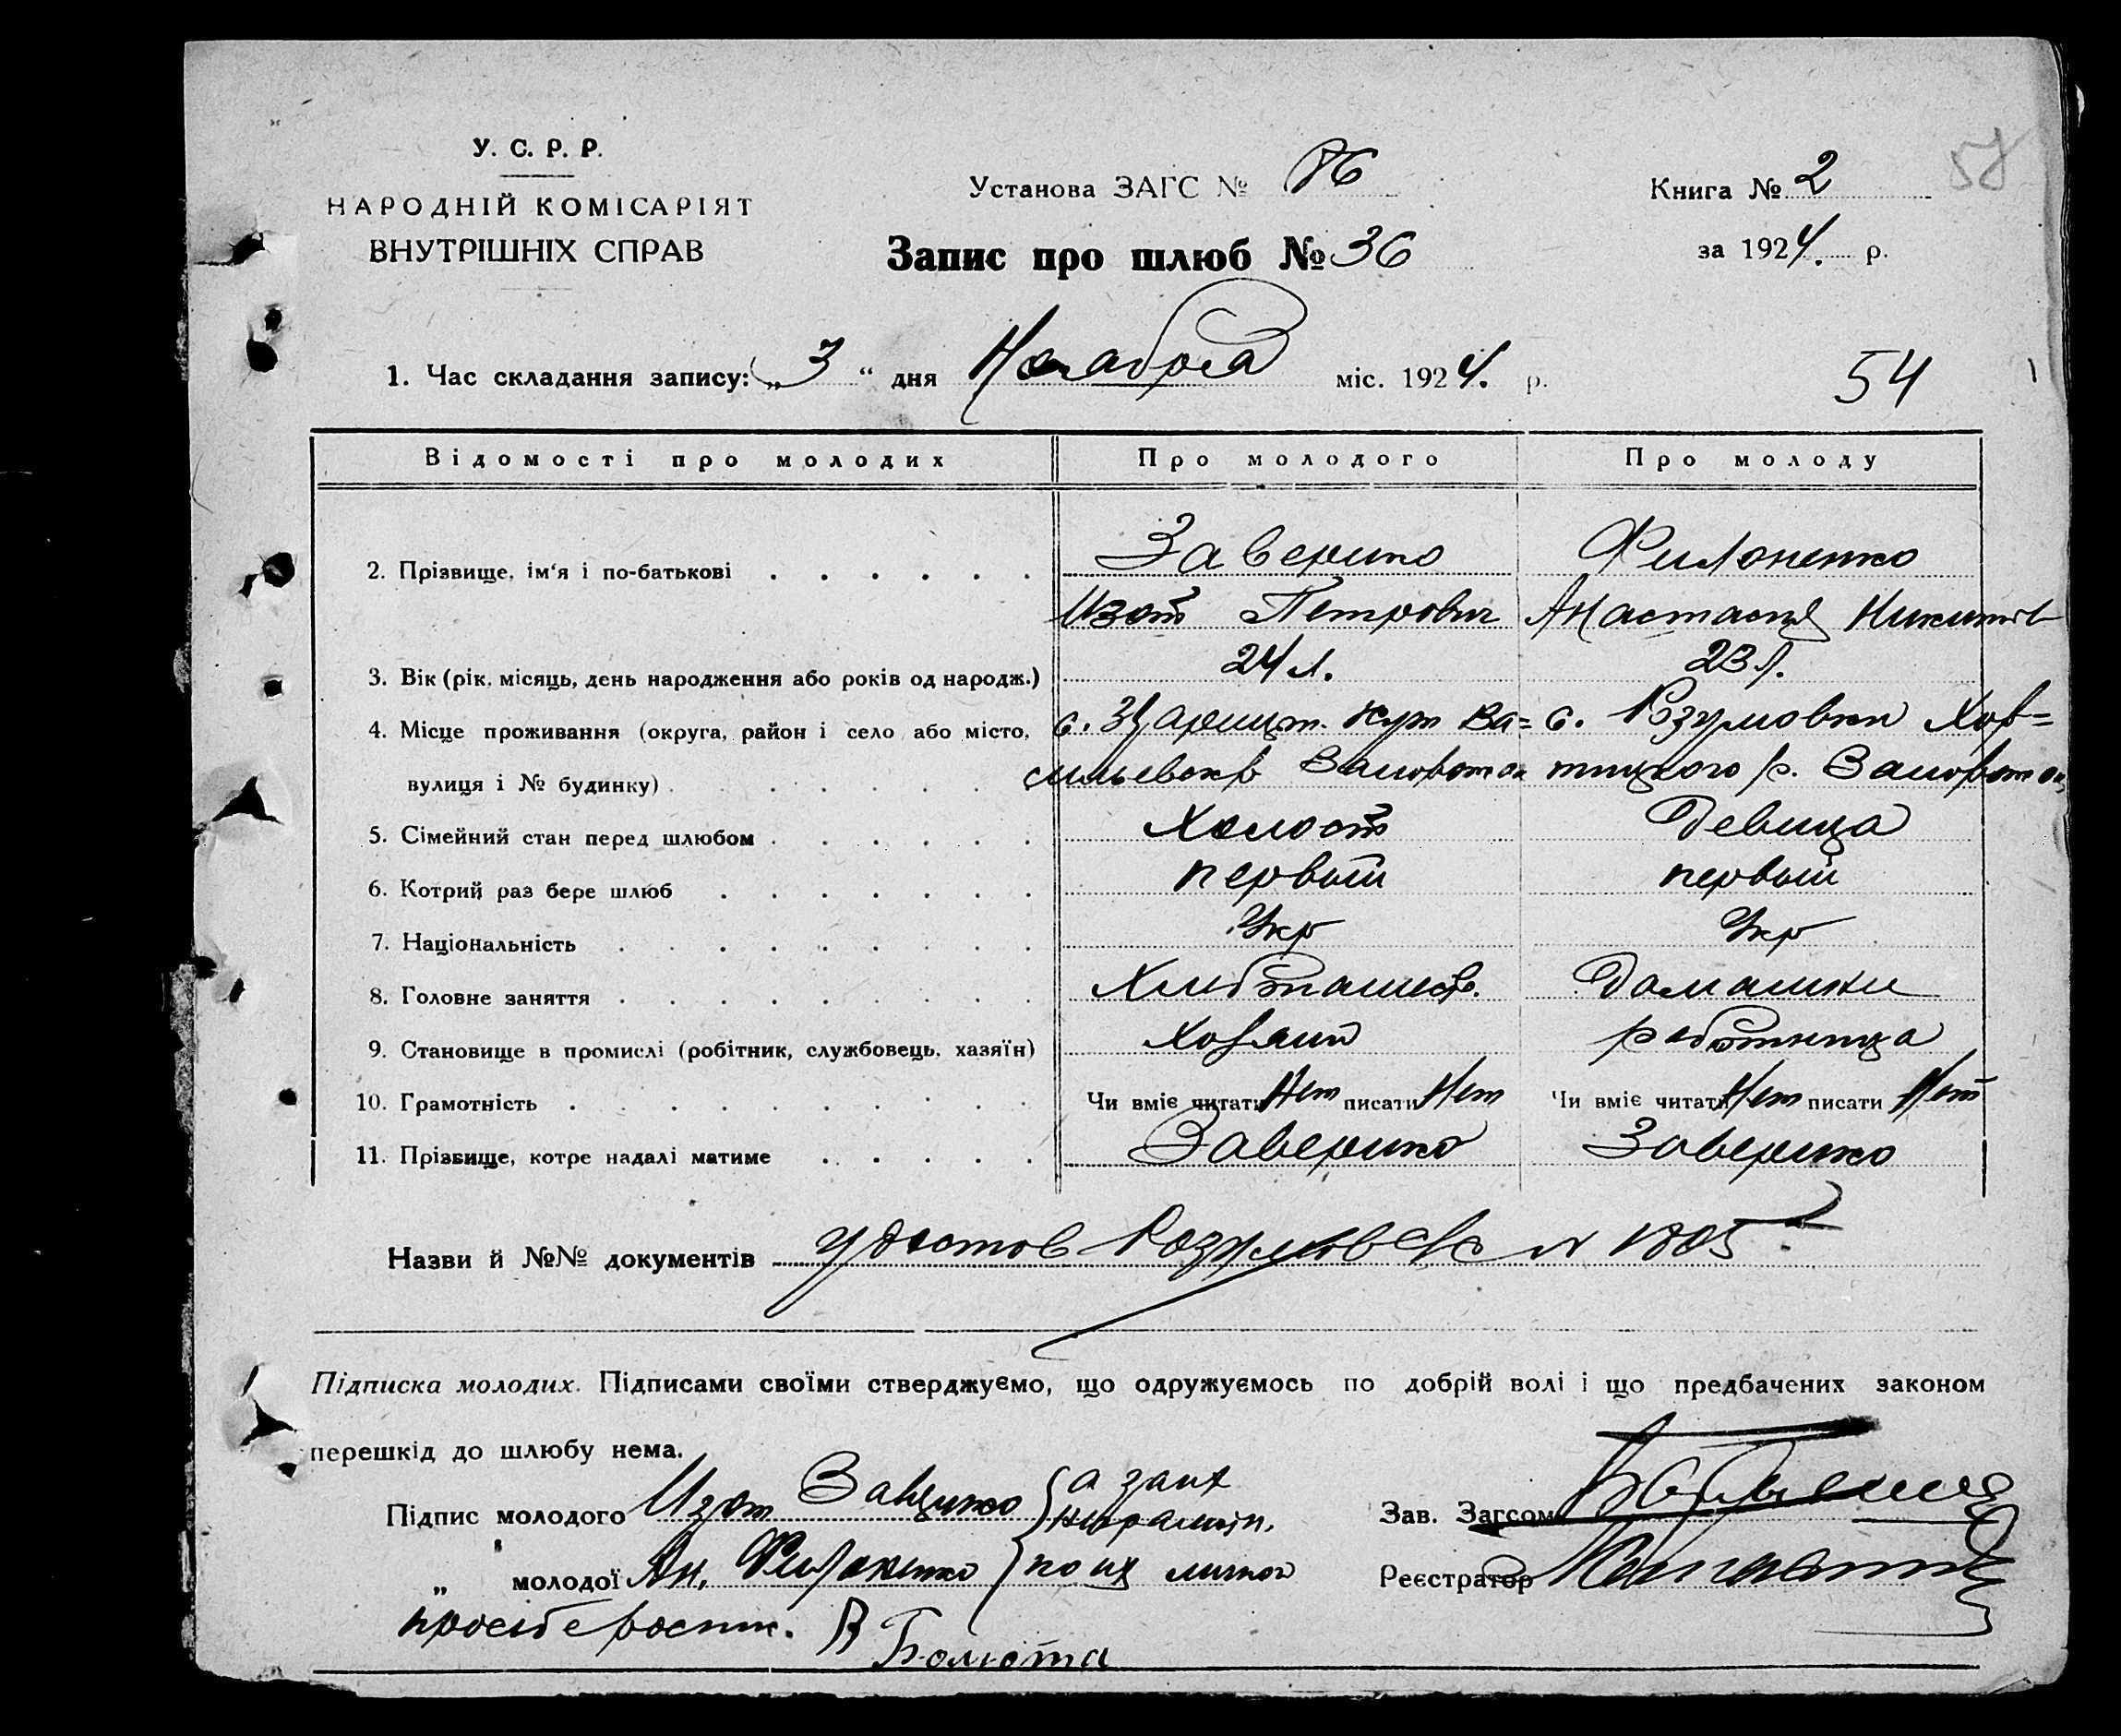 У. С. Р. Р.
НАРОДНІЙ КОМІСАРІЯТ
ВНУТРІШНІХ СПРАВ
Установа ЗАГС № 86
Запис про шлюб № 36
Книга № 2
за 1924. р.
58
1. Час складання запису: „3“ дня Ноября міс. 1924. р.
54
Відомості про молодих Про молодого Про молоду
2. Прізвище, ім‘я і по-батькові Заверико Филоненко
Изот Петрович Анастасия Никитов
3. Вік (рік, місяць, день народження або років од народж.) 24 л. 23 л.
4. Місце проживання (округа, район і село або місто, с. Кут Ва= с. Розумовки Хор=
вулиця і № будинку) сильевск р тицкого р.
5. Сімейний стан перед шлюбом Холост Девица
6. Котрий раз бере шлюб первый первый
7. Національність Укр Укр
8. Головне заняття Хлебопашеств. Домашни
9. Становище в промислі (робітник, службовець, хазяїн) Хозяин работница
10. Грамотність Чи вміє читати Нет писати Нет Чи вміє читати Нет писати Нет
11. Прізвище, котре надалі матиме Заверико Заверико
Назви й №№ документів удостов Розумов с/с N 1805
Підписка молодих. Підписами своїми стверджуємо, що одружуємось по добрій волі і що предбачених законом
перешкід до шлюбу нема.
Підпис молодого Изот а за них
неграмотн.
Зав. Загсом
„ молодої Ан. Филоненко по их личной
Реєстратор
просьбе роспис. В Болюта